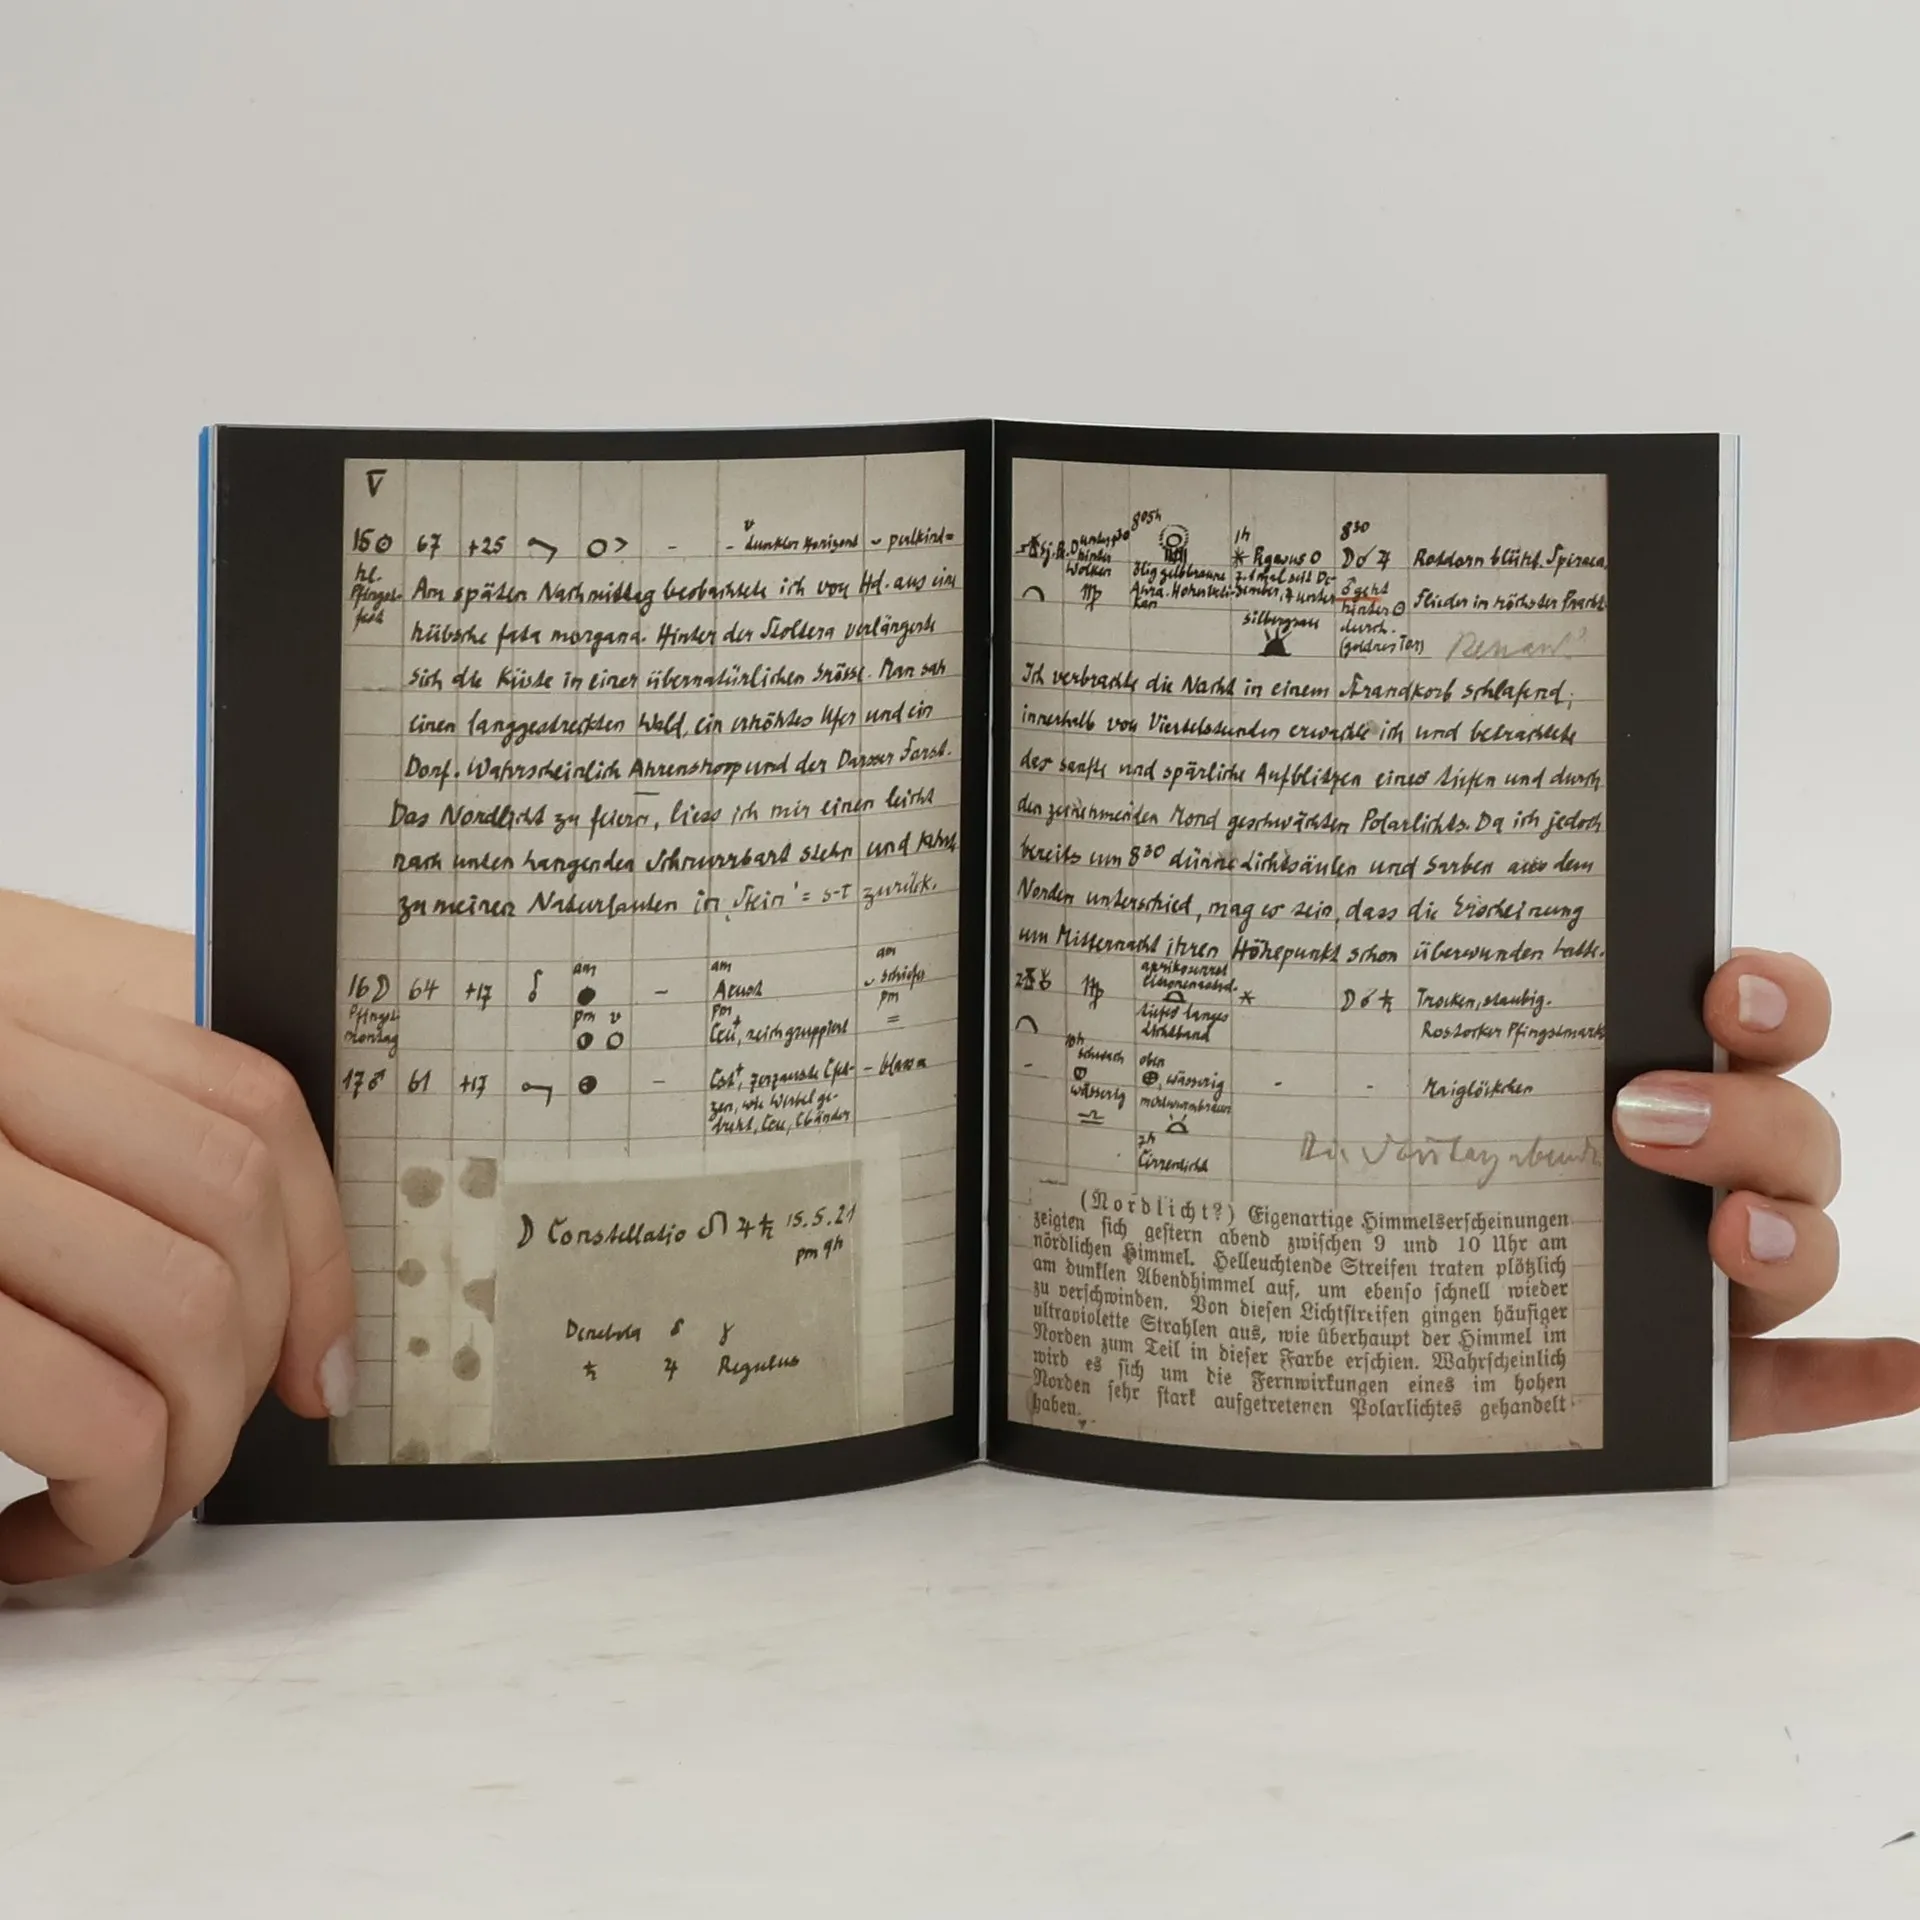 V
15 ☉ 67 +25 - - dunkler Horizont -
hl.
Pfingst-
fest
Am späten Nachmittag beobachtete ich von Hd. aus eine
hübsche fata morgana. Hinter der Stoltera verlängerte
sich die Küste in einer übernatürlichen Grösse. Man sah
einen langgestreckten Wald, ein erhöhtes Ufer und ein
Dorf. Wahrscheinlich Ahrenshoop und der Darsser Forst.
Das Nordlicht zu feiern, liess ich mir einen leicht
nach unten hangenden Schnurrbart stehn und kehrte
zu meinen Naturlauten in 'Stein' = s-t zurück.
am am am
16 ☽ 64 +17 - schiefer
Pfingst-
montag
pm pm pm
reich gruppiert =
17 ♂ 61 +17 - zerzauste
wie Wirbel ge-
dreht, Ccu, Cbänder
☽ Constellatio ♌ ♃ ♄ 15.5.21
pm 9h
Denebola δ γ
♄ ♃ Regulus
805h 1h 830
hinter
Wolken
♍
ölig gelbbraune
Aura.
* Pegasus
silbergrau
☽ ☌ ♃
♂ geht
hinter ☉
durch.
(goldner Ton)
Rotdorn blüht. Spiraea.
Flieder in höchster Pracht.
Ich verbrachte die Nacht in einem Strandkorb schlafend;
innerhalb von Viertelstunden erwachte ich und betrachtete
das sanfte und spärliche Aufblitzen eines tiefen und durch
den zunehmenden Mond geschwächten Polarlichts. Da ich jedoch
bereits um 830 dünne Lichtsäulen und Garben aus dem
Norden unterschied, mag es sein, dass die Erscheinung
um Mitternacht ihren Höhepunkt schon überwunden hatte.
♍ aprikosenrot
tiefes langes
Lichtband
* ☽ ☌ ♄ Trocken, staubig.
Rostocker Pfingstmarkt
- 10h
schwach
wässerig
♎
oben
wässerig
- - Maiglöckchen
7h
Cirrenlicht
(Nordlicht?) Eigenartige Himmelserscheinungen
zeigten sich gestern abend zwischen 9 und 10 Uhr am
nördlichen Himmel. Helleuchtende Streifen traten plötzlich
am dunklen Abendhimmel auf, um ebenso schnell wieder
zu verschwinden. Von diesen Lichtstreifen gingen häufiger
ultraviolette Strahlen aus, wie überhaupt der Himmel im
Norden zum Teil in dieser Farbe erschien. Wahrscheinlich
wird es sich um die Fernwirkungen eines im hohen
Norden sehr stark aufgetretenen Polarlichtes gehandelt
haben.